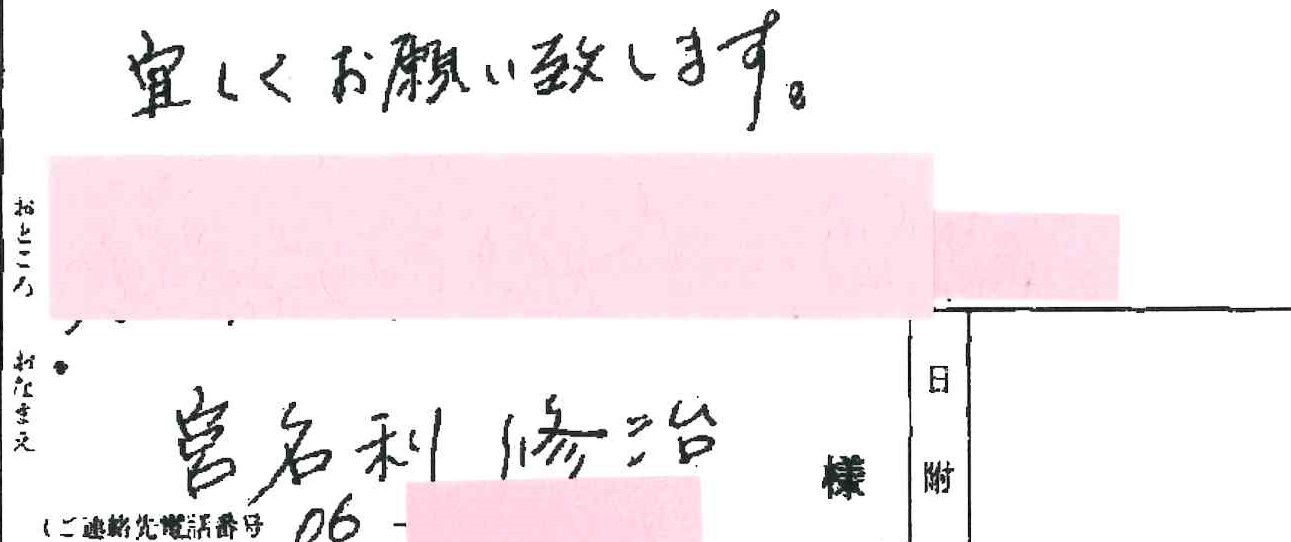 宜しくお願い致します。
おところ
おなまえ
宮名利 修治 様
日附
(ご連絡先電話番号 06 -